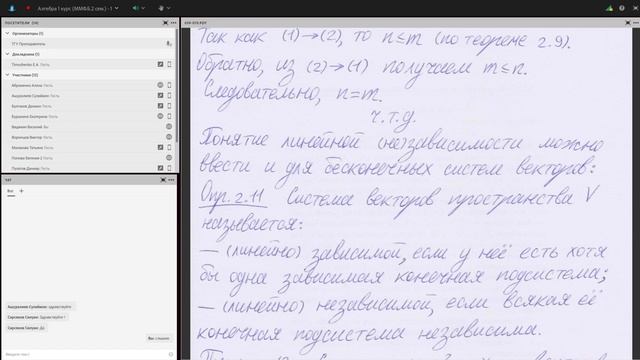 Алгебра 1 курс (ММФ6.2 сем.) - 1
ПОСЕТИТЕЛИ (14)
Организаторы (1)
ТГУ Преподаватель
Докладчики (1)
Timoshenko E.A. Гость
Участники (12)
Абраменко Алена: Гость
Ашуралиев Сулайман: Гость
Булгаков Даниил: Гость
Бурухина Екатерина: Гость
Ващенин Василий: Вы
Воронцов Виктор: Гость
Малахова Татьяна: Гость
Попова Евгения 2: Гость
Пулатов Динияр: Гость
ЧАТ
Все
Ашуралиев Сулайман: здравствуйте
Сирожов Сиерож: Здравствуйте !
Сирожов Сиерож: Да
Вы: слышно
Введите текст
Так как (1)→(2), то n≤m (по теореме 2.9).
Обратно, из (2)→(1) получаем m≤n.
Следовательно, n=m.
ч.т.д.
Понятие линейной (не)зависимости можно
ввести и для бесконечных систем векторов:
Опр. 2.11 Система векторов пространства V
называется:
— (линейно) зависимой, если у неё есть хотя
бы одна зависимая конечная подсистема;
— (линейно) независимой, если всякая её
конечная подсистема независима.